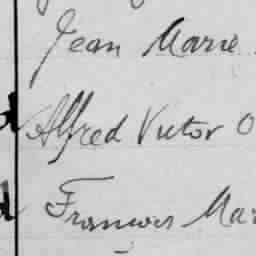 Jean Marie
d Alfred Victor O
d François Mar